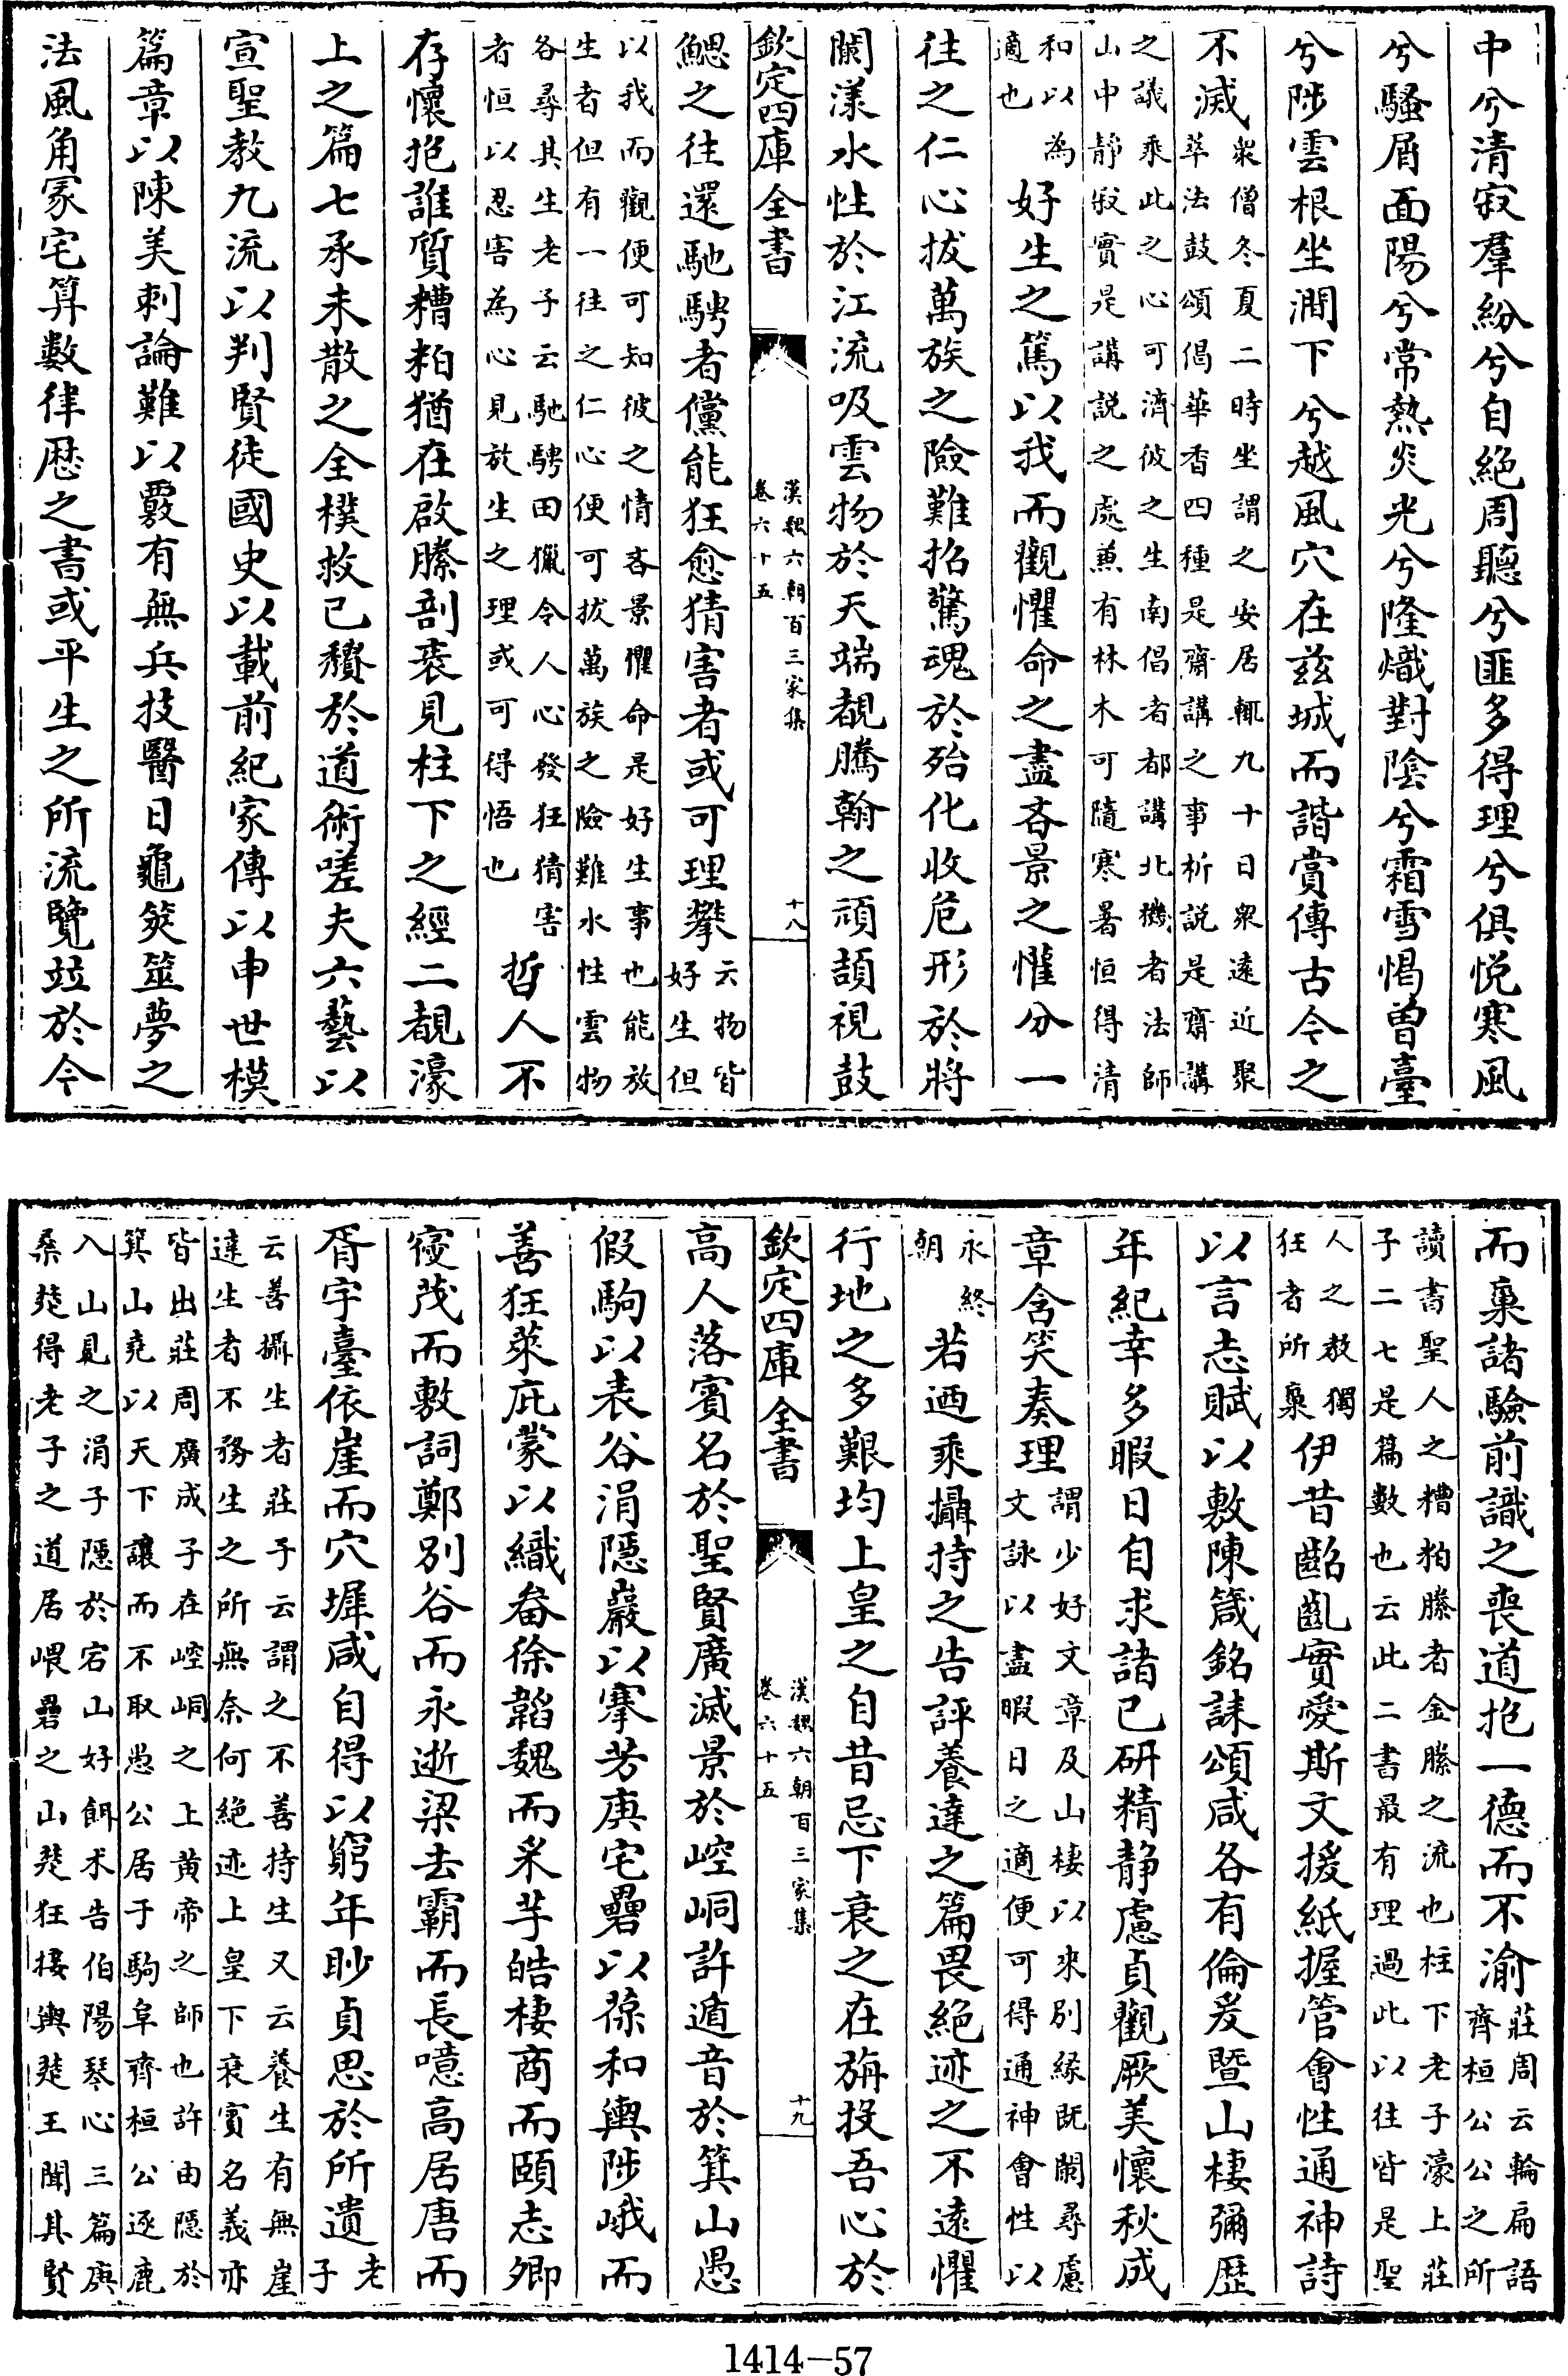 中兮清寂羣紛兮自絕周聽兮匪多得理兮俱悅寒風
兮騷屑面陽兮常熱炎光兮隆熾對陰兮霜雪愒曾臺
兮陟雲根坐澗下兮越風穴在茲城而諧賞傳古今之
不滅
衆僧冬夏二時坐謂之安居輒九十日衆遠近聚
萃法鼓頌倡華香四種是齋講之事析說是齋講
之議乘此之心可濟彼之生南倡者都講北機者法師
山中靜寂實是講說之處兼有林木可隨寒暑恒得清
和以為
適也
好生之篤以我而觀懼命之盡吝景之懽分一
往之仁心拔萬族之險難招驚魂於殆化收危形於將
闌漾水性於江流吸雲物於天端覩騰翰之頑頡視鼓
欽定四庫全書
漢魏六朝百三家集
卷六十五
十八
鰓之往還馳騁者儻能狂愈猜害者或可理攀
云物皆
好生但
以我而觀便可知彼之情吝景懼命是好生事也能放
生者但有一往之仁心便可拔萬族之險難水性雲物
各尋其生老子云馳騁田獵令人心發狂猜害
者恒以忍害為心見放生之理或可得悟也
哲人不
存懷抱誰質糟粕猶在啟縢剖袠見柱下之經二覩濠
上之篇七承未散之全樸救已穨於道術嗟夫六藝以
宣聖教九流以判賢徒國史以載前紀家傳以申世模
篇章以陳美刺論難以覈有無兵技醫日龜筴筮夢之
法風角冢宅算數律歴之書或平生之所流覽竝於今
而棄諸驗前識之喪道抱一德而不渝
莊周云輪扁語
齊桓公公之所
讀書聖人之糟粕縢者金縢之流也柱下老子濠上莊
子二七是篇數也云此二書最有理過此以往皆是聖
人之教獨
狂者所棄
伊昔齠齔實愛斯文援紙握管會性通神詩
以言志賦以敷陳箴銘誄頌咸各有倫爰暨山棲彌歴
年紀幸多暇日自求諸已研精靜慮貞觀厥美懷秋成
章含笑奏理
謂少好文章及山棲以來別緣既闌尋慮
文詠以盡暇日之適便可得通神會性以
永終
朝
若迺乘攝持之告評養達之篇畏絕迹之不遠懼
行地之多艱均上皇之自昔忌下衰之在旃投吾心於
欽定四庫全書
漢魏六朝百三家集
卷六十五
十九
高人落賓名於聖賢廣滅景於崆峒許遁音於箕山愚
假駒以表谷涓隱巖以搴芳庚宅礨以葆和輿陟峨而
善狂萊庇蒙以織畚徐韜魏而采芋皓棲商而頤志卿
寑茂而敷詞鄭別谷而永逝梁去霸而長噫高居唐而
胥宇臺依崖而穴墀咸自得以窮年眇貞思於所遺
老
子
云善攝生者莊子云謂之不善持生又云養生有無崖
達生者不務生之所無奈何絕迹上皇下衰賓名義亦
皆出莊周廣成子在崆峒之上黃帝之師也許由隱於
箕山堯以天下讓而不取愚公居于駒阜齊桓公逐鹿
入山見之涓子隱於宕山好餌朮告伯陽琴心三篇庚
桑楚得老子之道居㟪礨之山楚狂接輿楚王聞其賢
1414—57